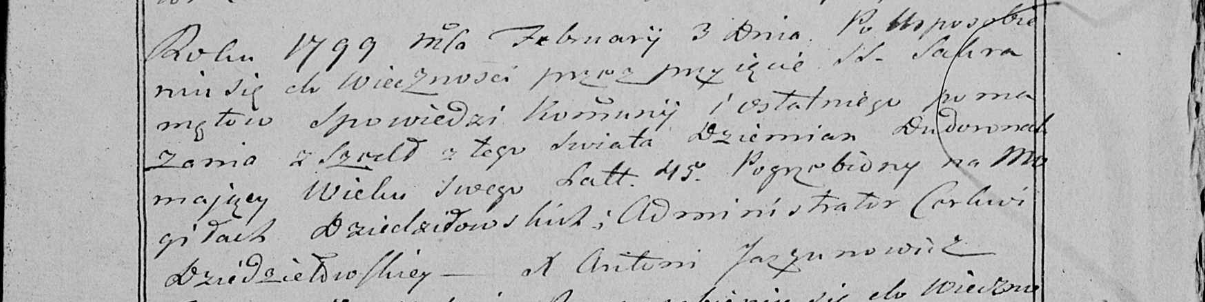 Roku 1799 mca February 3 Dnia. Po Usposobie
niu się do wieczności przez przyięcie SS. Sakra
mętow Spowiedzi Komunij i ostatniego poma
zania zszedł z tego świata Dziemian
mający Wieku swego Latt. 45. Pogrzebiony na Mo
giłach Dziedziłowskich; Administrator Cerkwi
Dziedziełowskiey — X Antoni Jazgunowicz
się do Wieczno